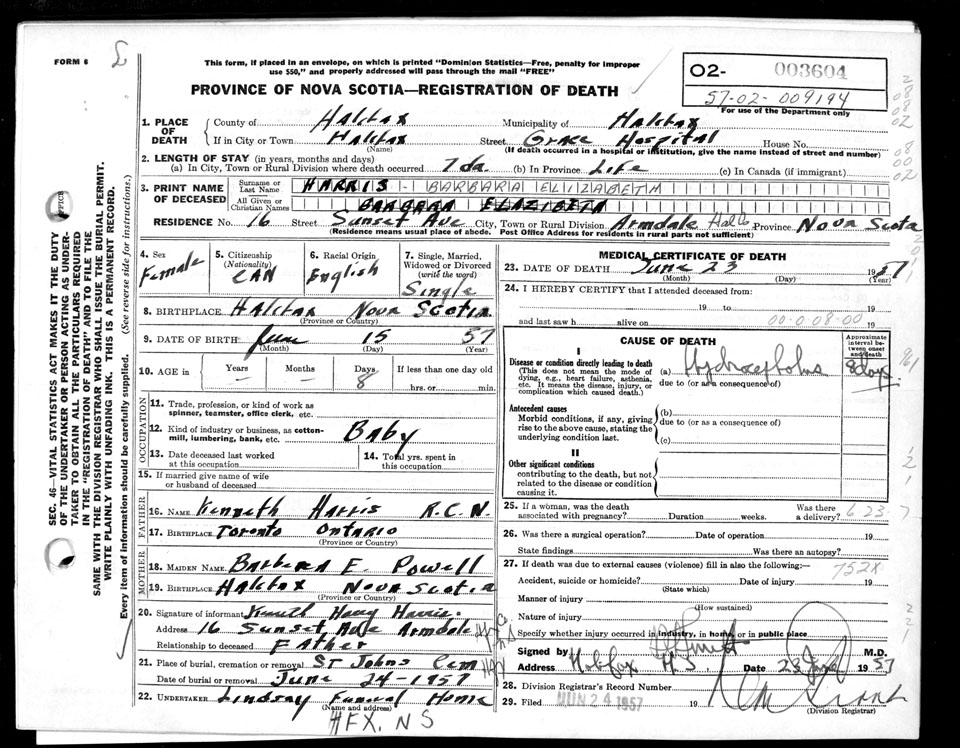 FORM 6
This form, if placed in an envelope, on which is printed "Dominion Statistics—Free, penalty for improper
use $50," and properly addressed will pass through the mail "FREE"
PROVINCE OF NOVA SCOTIA—REGISTRATION OF DEATH
O2- 003604
57-02-009194
For use of the Department only
1. PLACE OF DEATH
County of Halifax Municipality of Halifax
If in City or Town Halifax Street Grace Hospital House No.
(Name) (If death occurred in a hospital or institution, give the name instead of street and number)
2. LENGTH OF STAY (in years, months and days)
(a) In City, Town or Rural Division where death occurred 7 da. (b) In Province Life (c) In Canada (if immigrant)
3. PRINT NAME OF DECEASED
Surname or Last Name HARRIS - BARBARA ELIZABETH
All Given or Christian Names BARBARA ELAZIBETA
RESIDENCE No. 16 Street Sunset Ave City, Town or Rural Division Armdale Province Nova Scota
(Residence means usual place of abode. Post Office Address for residents in rural parts not sufficient)
4. Sex Female
5. Citizenship (Nationality) CAN
6. Racial Origin English
7. Single, Married, Widowed or Divorced (write the word) Single
8. BIRTHPLACE Halifax Nova Scotia
(Province or Country)
9. DATE OF BIRTH June 15 57
(Month) (Day) (Year)
10. AGE in Years — Months — Days 8 If less than one day old hrs. or min.
OCCUPATION
11. Trade, profession, or kind of work as spinner, teamster, office clerk, etc.
12. Kind of industry or business, as cotton-mill, lumbering, bank, etc. Baby
13. Date deceased last worked at this occupation
14. Total yrs. spent in this occupation
15. If married give name of wife or husband of deceased
FATHER
16. NAME Kenneth Harris R.C.N.
17. BIRTHPLACE Toronto Ontario
(Province or Country)
MOTHER
18. MAIDEN NAME Barbara E. Powell
19. BIRTHPLACE Halifax Nova Scotia
(Province or Country)
20. Signature of informant Kenneth Harry Harris.
Address 16 Sunset Ave Armdale
Relationship to deceased Father
21. Place of burial, cremation or removal St Johns Cem
Date of burial or removal June 24-1957
22. UNDERTAKER Lindsay Funeral Home
(Name and address)
HFX, NS
MEDICAL CERTIFICATE OF DEATH
23. DATE OF DEATH June 23 1957
(Month) (Day) (Year)
24. I HEREBY CERTIFY that I attended deceased from:
19 to 19
and last saw h alive on 00-0-08-00 19
CAUSE OF DEATH
Approximate interval between onset and death
I
Disease or condition directly leading to death
(This does not mean the mode of dying, e.g., heart failure, asthenia, etc. It means the disease, injury, or complication which caused death.)
(a) Hydrocephalus 8 days
due to (or as a consequence of)
Antecedent causes
Morbid conditions, if any, giving rise to the above cause, stating the underlying condition last.
(b)
due to (or as a consequence of)
(c)
II
Other significant conditions
contributing to the death, but not related to the disease or condition causing it.
25. If a woman, was the death associated with pregnancy? Duration weeks. Was there a delivery? 6 23-7
26. Was there a surgical operation? Date of operation 19
State findings Was there an autopsy?
27. If death was due to external causes (violence) fill in also the following:- 752X
Accident, suicide or homicide? Date of injury 19
(State which)
Manner of injury
(How sustained)
Nature of injury
Specify whether injury occurred in industry, in home, or in public place
Signed by M.D.
Address Halifax N.S. Date 23 June 1957
28. Division Registrar's Record Number
29. Filed JUN 24 1957 19
(Division Registrar)
SEC. 46—VITAL STATISTICS ACT MAKES IT THE DUTY
OF THE UNDERTAKER OR PERSON ACTING AS UNDER-
TAKER TO OBTAIN ALL THE PARTICULARS REQUIRED
IN THE "REGISTRATION OF DEATH" AND TO FILE THE
SAME WITH THE DIVISION REGISTRAR WHO SHALL ISSUE THE BURIAL PERMIT.
WRITE PLAINLY WITH UNFADING INK. THIS IS A PERMANENT RECORD.
Every item of information should be carefully supplied. (See reverse side for instructions.)